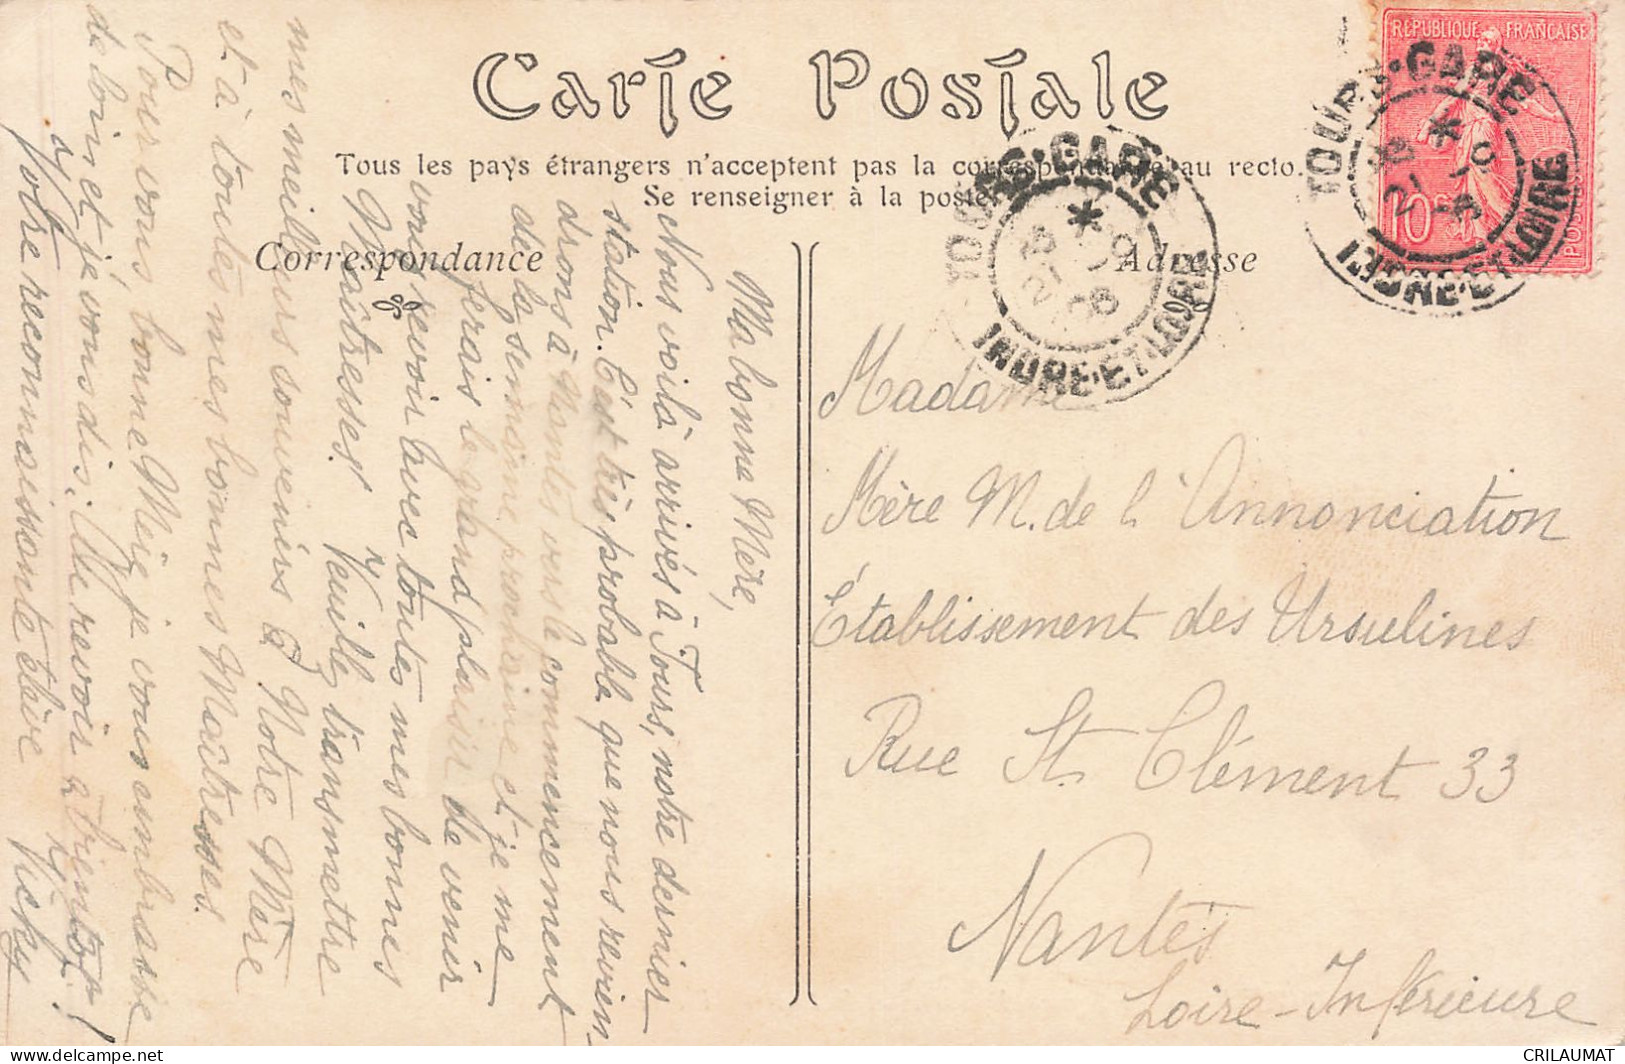 Carte Postale
Tous les pays étrangers n'acceptent pas la correspondance au recto.
Se renseigner à la poste.
Correspondance
Adresse
RÉPUBLIQUE FRANÇAISE
10c
POSTES
TOURS-GARE
INDRE-ET-LOIRE
TOURS-GARE
INDRE-ET-LOIRE
Madame
Mère M. de l'Annonciation
Établissement des Ursulines
Rue St. Clément 33
Nantes
Loire-Inférieure
Ma bonne Mère,
Nous voilà arrivés à Tours, notre dernier
station. C'est très probable que nous revien
drons à Nantes vers le commencement
de la semaine prochaine et je me
ferais le grand plaisir de venir
vous revoir avec toutes mes bonnes
Maîtresses! Veuillez transmettre
mes meilleurs souvenirs à Notre Mère
et à toutes mes bonnes Maîtresses.
Pour vous, bonne Mère, je vous embrasse
de loin et je vous dis: Au revoir à bientôt!
Votre reconnaissante élève Vicky
CRILAUMAT